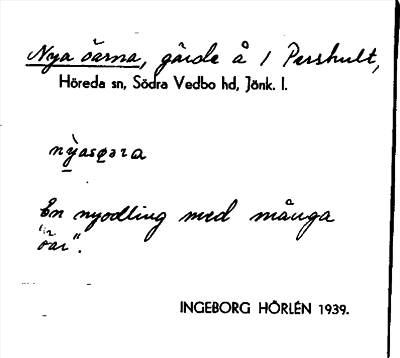 Nya öarna, gärde å 1 Pershult,
Höreda sn, Södra Vedbo hd, Jönk. l.
En nyodling med många
"öar".
INGEBORG HÖRLÉN 1939.